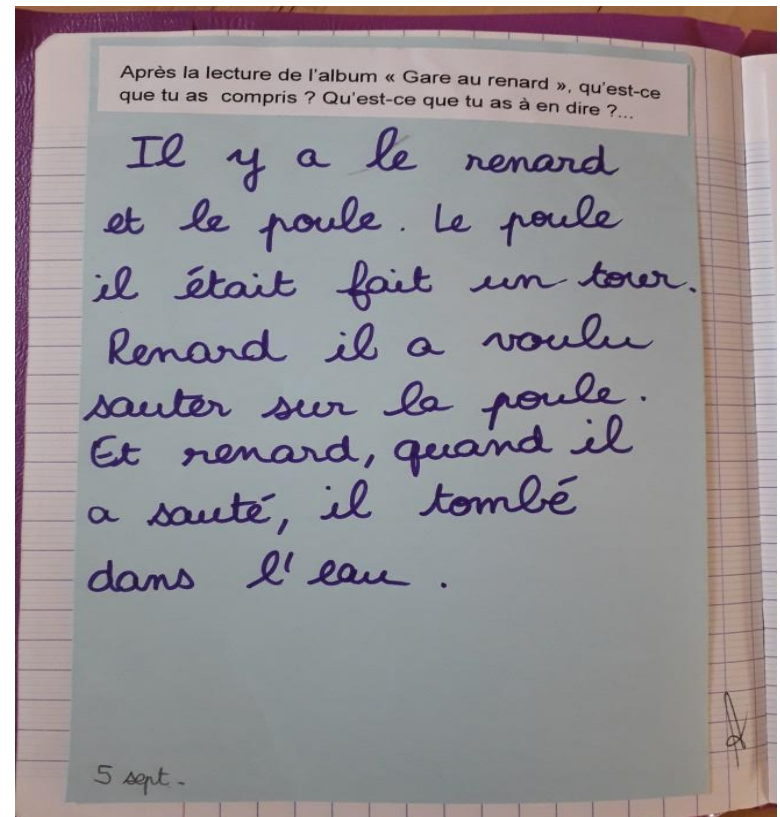 Après la lecture de l'album « Gare au renard », qu'est-ce
que tu as compris ? Qu'est-ce que tu as à en dire ?...
Il y a le renard
et le poule. Le poule
il était fait un tour.
Renard il a voulu
sauter sur la poule.
Et renard, quand il
a sauté, il tombé
dans l'eau.
5 sept.